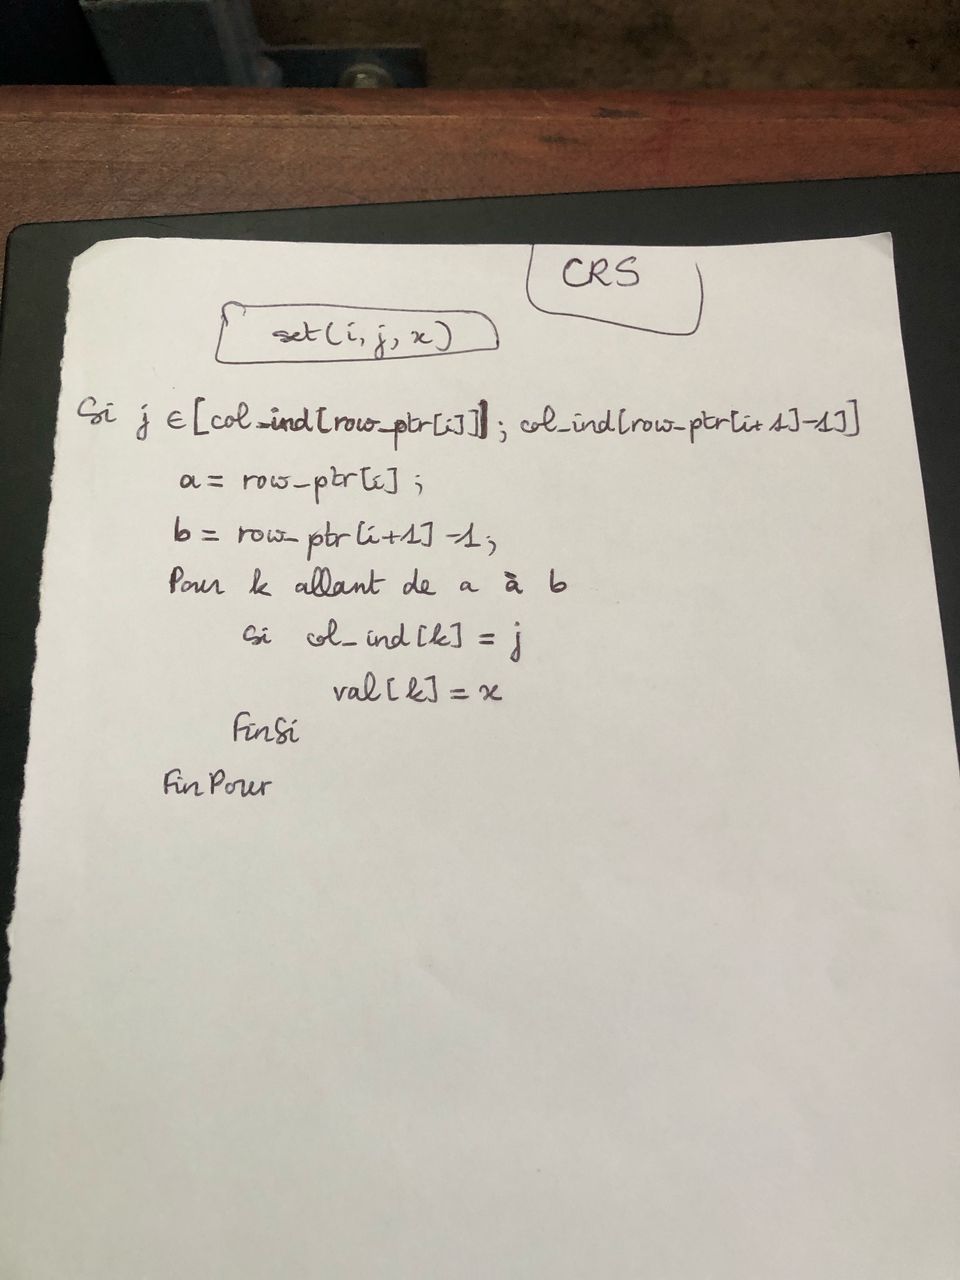 CRS
set(i, j, x)
Si j ∈ [col_ind[row_ptr[i]] ; col_ind[row_ptr[i+1]-1]]
a = row_ptr[i] ;
b = row_ptr[i+1] -1;
Pour k allant de a à b
Si col_ind[k] = j
val[k] = x
FinSi
FinPour